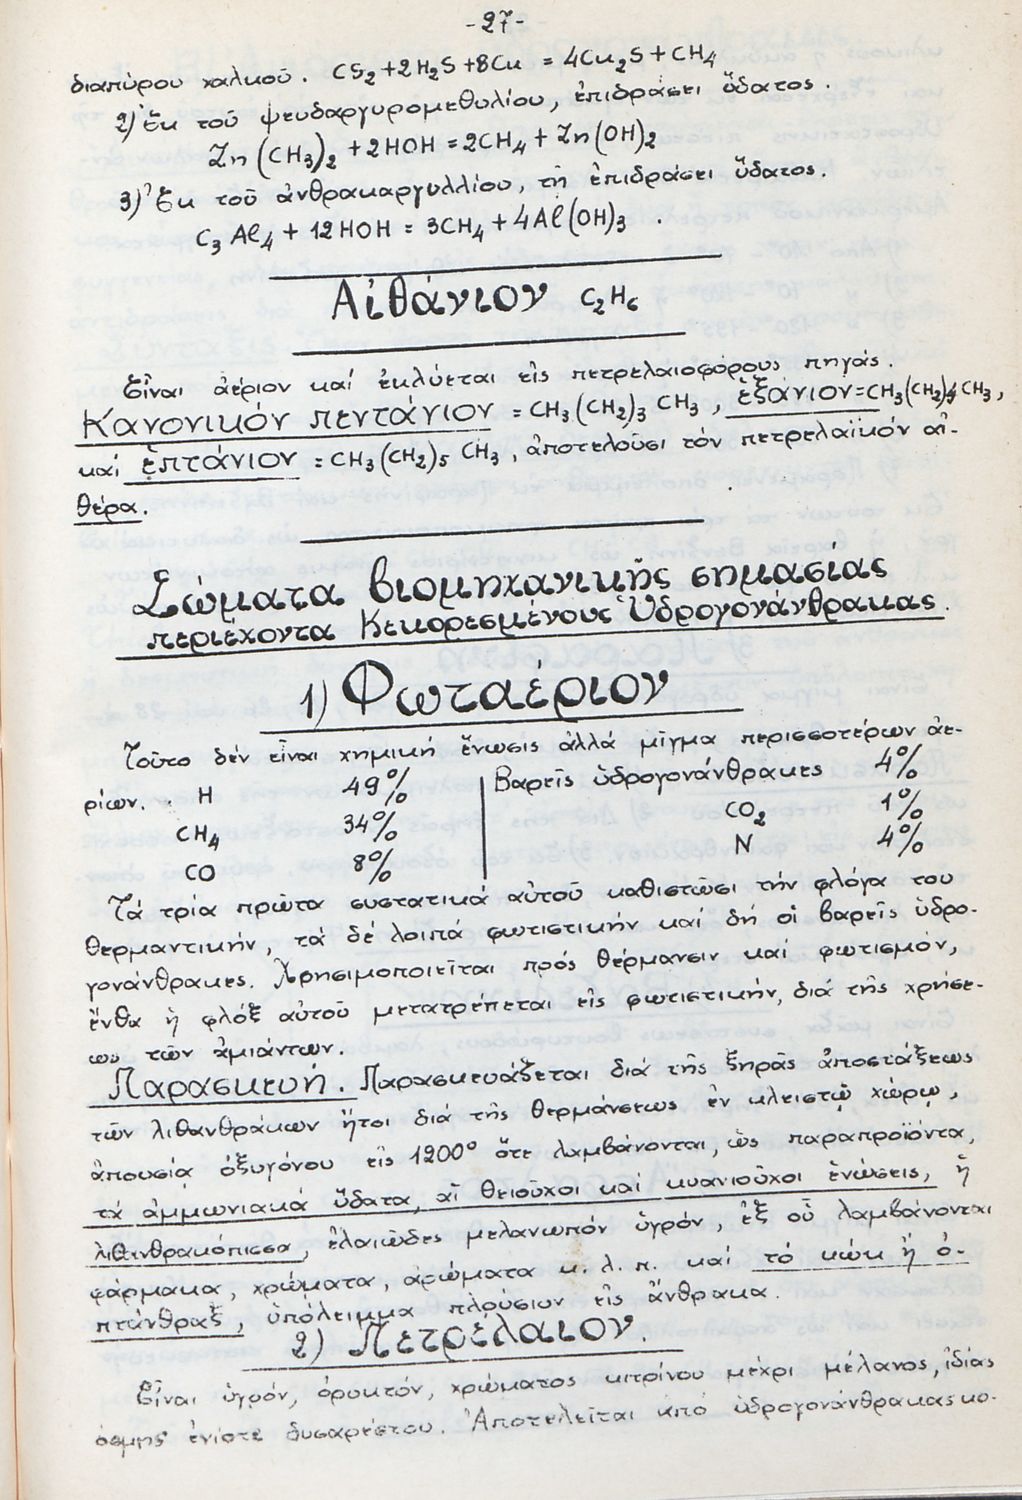 -27-
διαπύρου χαλκοῦ. CS2+2H2S+8Cu = 4Cu2S+CH4
2) Ἐκ τοῦ ψευδαργυρομεθυλίου, ἐπιδράσει ὕδατος.
Zn(CH3)2 +2HOH =2CH4+Zn(OH)2
3) Ἐκ τοῦ ἀνθρακαργυλλίου, τῇ ἐπιδράσει ὕδατος.
C3Al4+12HOH = 3CH4+4Al(OH)3
Αἰθάνιον C2H6
Εἶναι ἀέριον καί ἐκλύεται εἰς πετρελαιοφόρους πηγάς.
Κανονικόν πεντάνιον = CH3(CH2)3 CH3, ἑξάνιον=CH3(CH2)4 CH3,
καί ἑπτάνιον = CH3(CH2)5 CH3, ἀποτελοῦσι τόν πετρελαϊκόν αἰ-
θέρα.
Σώματα βιομηχανικῆς σημασίας
περιέχοντα Κεκορεσμένους Ὑδρογονάνθρακας.
1) Φωταέριον
Τοῦτο δέν εἶναι χημική ἕνωσις ἀλλά μῖγμα περισσοτέρων ἀε-
ρίων. . H 49% Βαρεῖς ὑδρογονάνθρακες 4%
CH4 34% CO2 1%
CO 8% N 4%
Τά τρία πρῶτα συστατικά αὐτοῦ καθιστῶσι τήν φλόγα του
θερμαντικήν, τά δέ λοιπά φωτιστικήν καί δή οἱ βαρεῖς ὑδρο-
γονάνθρακες. Χρησιμοποιεῖται πρός θέρμανσιν καί φωτισμόν,
ἔνθα ἡ φλόξ αὐτοῦ μετατρέπεται εἰς φωτιστικήν, διά τῆς χρήσε-
ως τῶν ἀμιάντων.
Παρασκευή. Παρασκευάζεται διά τῆς ξηρᾶς ἀποστάξεως
τῶν λιθανθράκων ἤτοι διά τῆς θερμάνσεως ἐν κλειστῷ χώρῳ,
ἀπουσίᾳ ὀξυγόνου εἰς 1200° ὅτε λαμβάνονται, ὡς παραπροϊόντα,
τά ἀμμωνιακά ὕδατα, αἱ θειοῦχοι καί κυανιοῦχοι ἑνώσεις, ἡ
λιθανθρακόπισσα, ἐλαιῶδες μελανωπόν ὑγρόν, ἐξ οὗ λαμβάνονται
φάρμακα, χρώματα, ἀρώματα κ.λ.π. καί τό κώκ ἤ ὀ-
πτάνθραξ, ὑπόλειμμα πλούσιον εἰς ἄνθρακα.
2) Πετρέλαιον
Εἶναι ὑγρόν, ὀρυκτόν, χρώματος κιτρίνου μέχρι μέλανος, ἰδίας
ὀσμῆς ἐνίοτε δυσαρέστου. Ἀποτελεῖται ἀπό ὑδρογονάνθρακας κο-